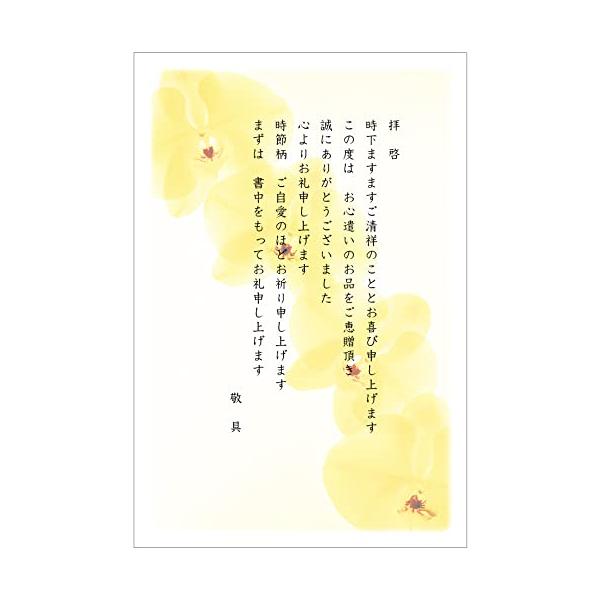 拝 啓
時下ますますご清祥のこととお喜び申し上げます
この度は お心遣いのお品をご恵贈頂き
誠にありがとうございました
心よりお礼申し上げます
時節柄 ご自愛のほどお祈り申し上げます
まずは 書中をもってお礼申し上げます
敬 具